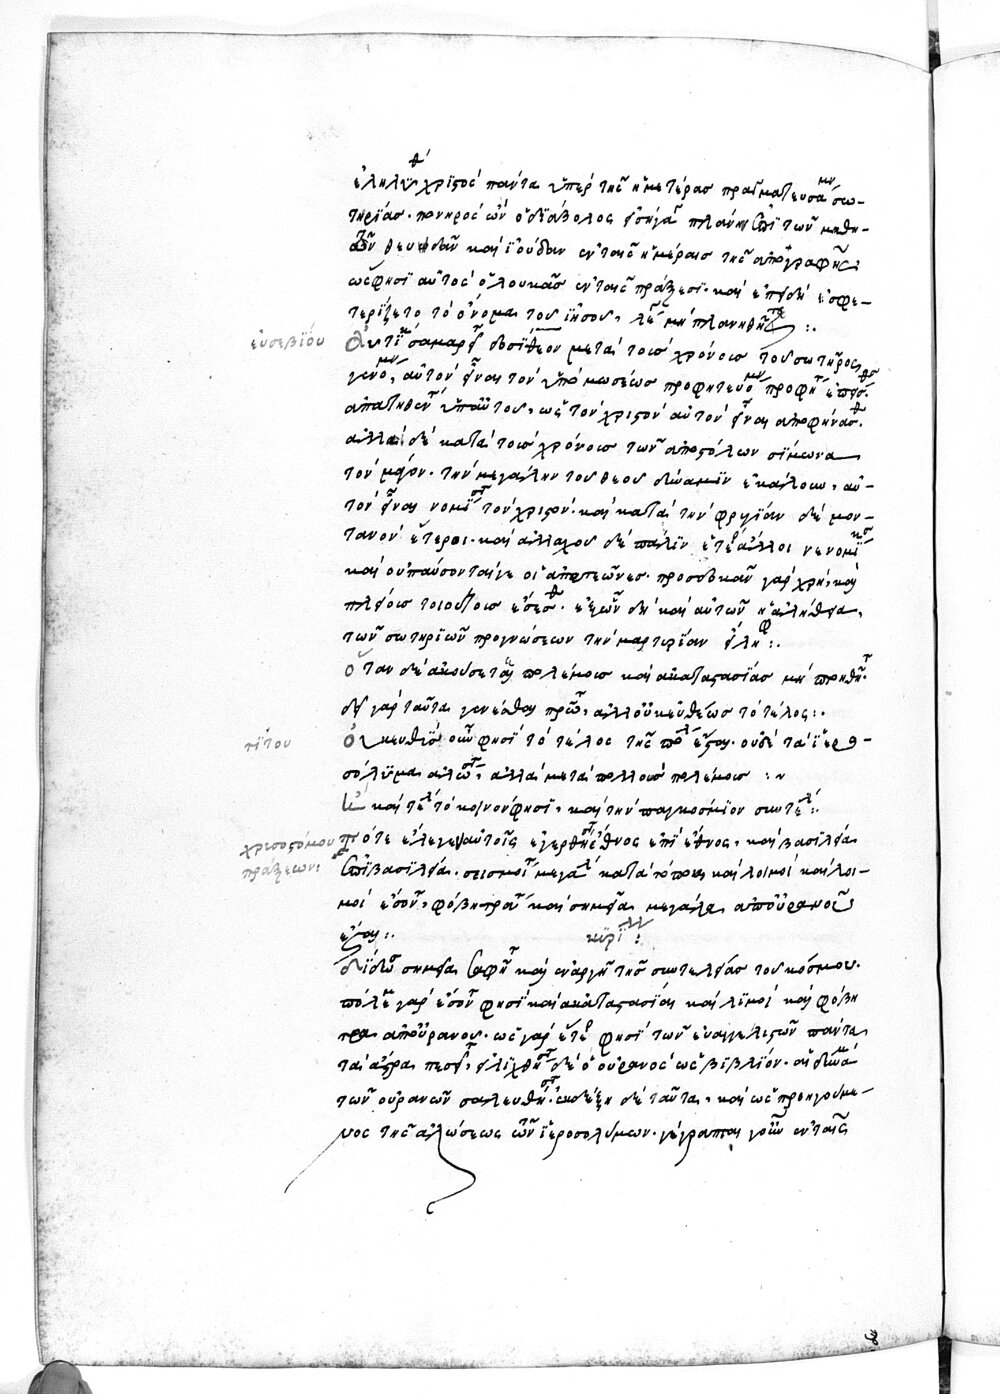 ἐληλύθ χριστὸς πάντα ὑπὲρ τῆς ἡμετέρας πραγματευσάμν σω-
τηρίας· πονηρὸς ὢν ὁ διάβολος πλάνην ἐπὶ τῶν
θευδᾶν καὶ ἰούδαν ἐν ταῖς ἡμέραις τῆς ἀπογραφῆς
ὥς φησι αὐτὸς ὁ λουκᾶς ἐν ταῖς πράξεσι· καὶ ἐπειδὴ ἐσφε-
τερίζετο τὸ ὄνομα τοῦ ἰησοῦ, μὴ πλανηθῆτε :·
εὐσεβίου
Οὕτω σαμαρει δοσίθεον μετὰ τοὺς χρόνους τοῦ σωτῆρος
γενομν, αὐτὸν εἶναι τὸν ὑπὸ μωσέως προφητευόμν προφήτ
ἀπατηθέντ ὑπ αὐτοῦ, ὡς τὸν χριστὸν αὐτὸν εἶναι ἀποφήνασθ.
ἄλλοι δὲ κατὰ τοὺς χρόνους τῶν ἀποστόλων σίμωνα
τὸν μάγον· τὴν μεγάλην τοῦ θεοῦ δύναμιν ἐκάλουν, αὐ-
τὸν εἶναι νομίσ τὸν χριστόν· καὶ κατὰ τὴν φρυγίαν δὲ μον-
τανὸν ἕτεροι· καὶ ἀλλαχοῦ δὲ πάλιν ἕτερ ἄλλοι νενομίκασ
καὶ οὐ παύσονταί γε οἱ ἀπατεῶνες· προσδοκᾶν γὰρ χρὴ, καὶ
πλείους τοιούτους ἔσεσθ· ἐξ ὧν δὴ καὶ αὐτῶν ἡ ἀλήθεια,
τῶν σωτηρίων προγνώσεων τὴν μαρτυρίαν εἴληφ :·
ὅταν δὲ ἀκούσητε πολέμους καὶ ἀκαταστασίας μὴ πτοηθῆτ·
δεῖ γὰρ ταῦτα γενέσθαι πρῶτ, ἀλλ οὐκ εὐθέως τὸ τέλος :·
τίτου
Οὐκ εὐθὺς οὖν φησὶ τὸ τέλος τῆς πόλ ἔσται· οὐδὲ τὰ ἱερο-
σόλυμα ἁλωσ, ἀλλὰ μετὰ πολλοὺς πολέμους :~
καὶ τέλ τὸ κοινὸν φησὶ, καὶ τὴν παγκόσμιον συντέλ :·
χρισοστόμου
πράξεων:
τότε ἔλεγεν αὐτοῖς ἐγερθήσ ἔθνος ἐπὶ ἔθνος, καὶ βασιλεία
ἐπὶ βασιλείαν· σεισμοί τ μεγάλ κατὰ τόπους καὶ λοιμοὶ καὶ λοι-
μοὶ ἔσοντ, φόβητρα τ καὶ σημεῖα μεγάλα ἀπ οὐρανοῦ
ἔσται :·
κυρίλλ :
δίδωσ σημεῖα σαφῆ τ καὶ ἐναργῆ τῆς συντελείας τοῦ κόσμου·
πόλε γὰρ ἔσοντ φησὶ καὶ ἀκαταστασίαι καὶ λιμοὶ καὶ φόβη
τρα ἀπ οὐρανοῦ· ὡς γὰρ ἕτερ φησὶ τῶν εὐαγγελιστῶν πάντα
τὰ ἄστρα πεσεῖτ, εἱλιχθήσ δὲ ὁ οὐρανὸς ὡς βιβλίον· αἱ δυνάμ
τῶν οὐρανῶν σαλευθήσ· ἐκδέξη δὲ ταῦτα, καὶ ὡς προηγούμε-
νος τῆς ἁλώσεως τῶν ἱεροσολύμων· γέγραπται γοῦν ἐν ταῖς